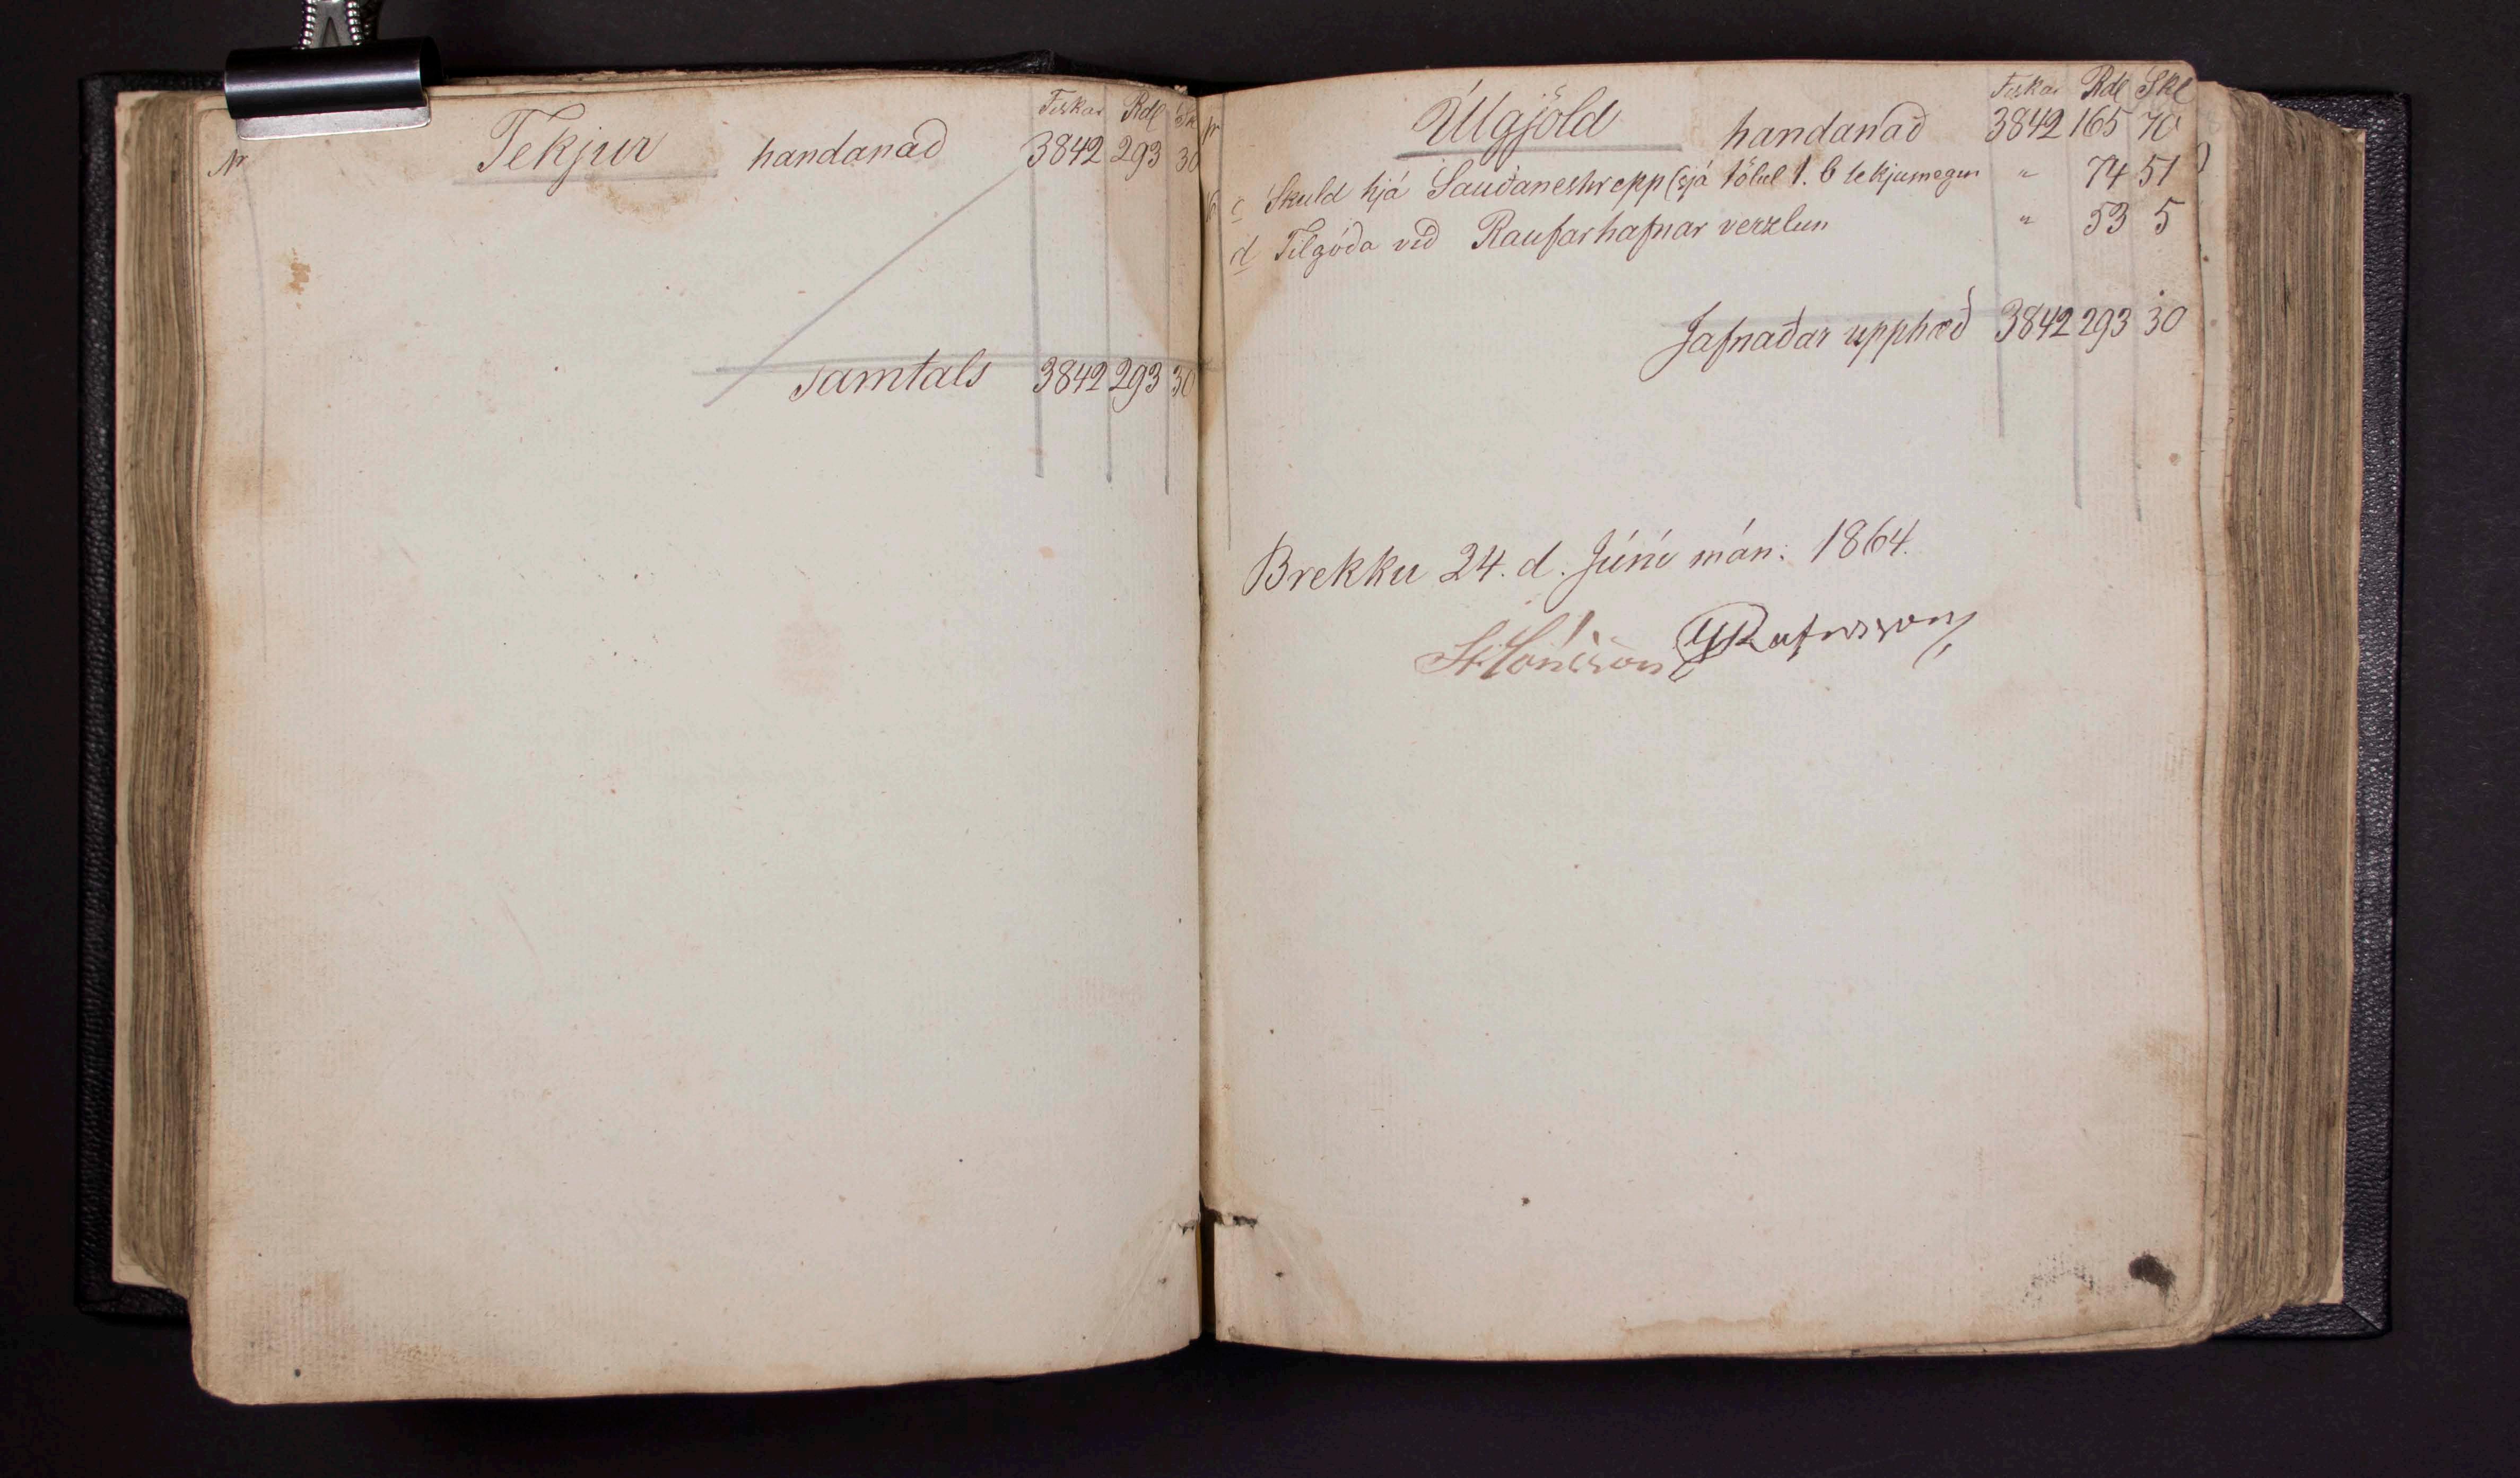 Fiskar Rdl Sk
Nr Tekjur handanað 3842 293 30
Samtals 3842 293 30
Fiskar Rdl Skl
Nr Útgjöld handanað 3842 165 70
c Skuld hjá Sauðaneshrepp (sjá tölul 1. b tekjumegin " 74 51
d Tilgóða við Raufarhafnar verzlun " 53 5
Jafnaðar upphæð 3842 293 30
Brekku 24. d. Júní mán: 1864.
St Jónsson Rafnsson